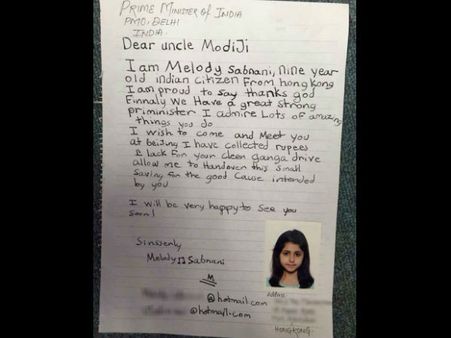 PRIME MINISTER of INDIA
PMO, DELHI
INDIA.
Dear uncle ModiJi
I am Melody Sabnani, nine year
old indian citizen From hongkong
I am proud to say thanks god
Finnaly We Have a great strong
priminister I admire Lots of amazing
things you do
I wish to come and Meet you
at beijing I have collected rupees
lack For your cleen ganga drive
allow me to Handover this small
saving for the good Cause intended
by you
I will be very happy to See you
Soon!
Sinssenly
Melody Sabnani
M
@hotmail.com
@hotmail.com
Address
HONGKONG.